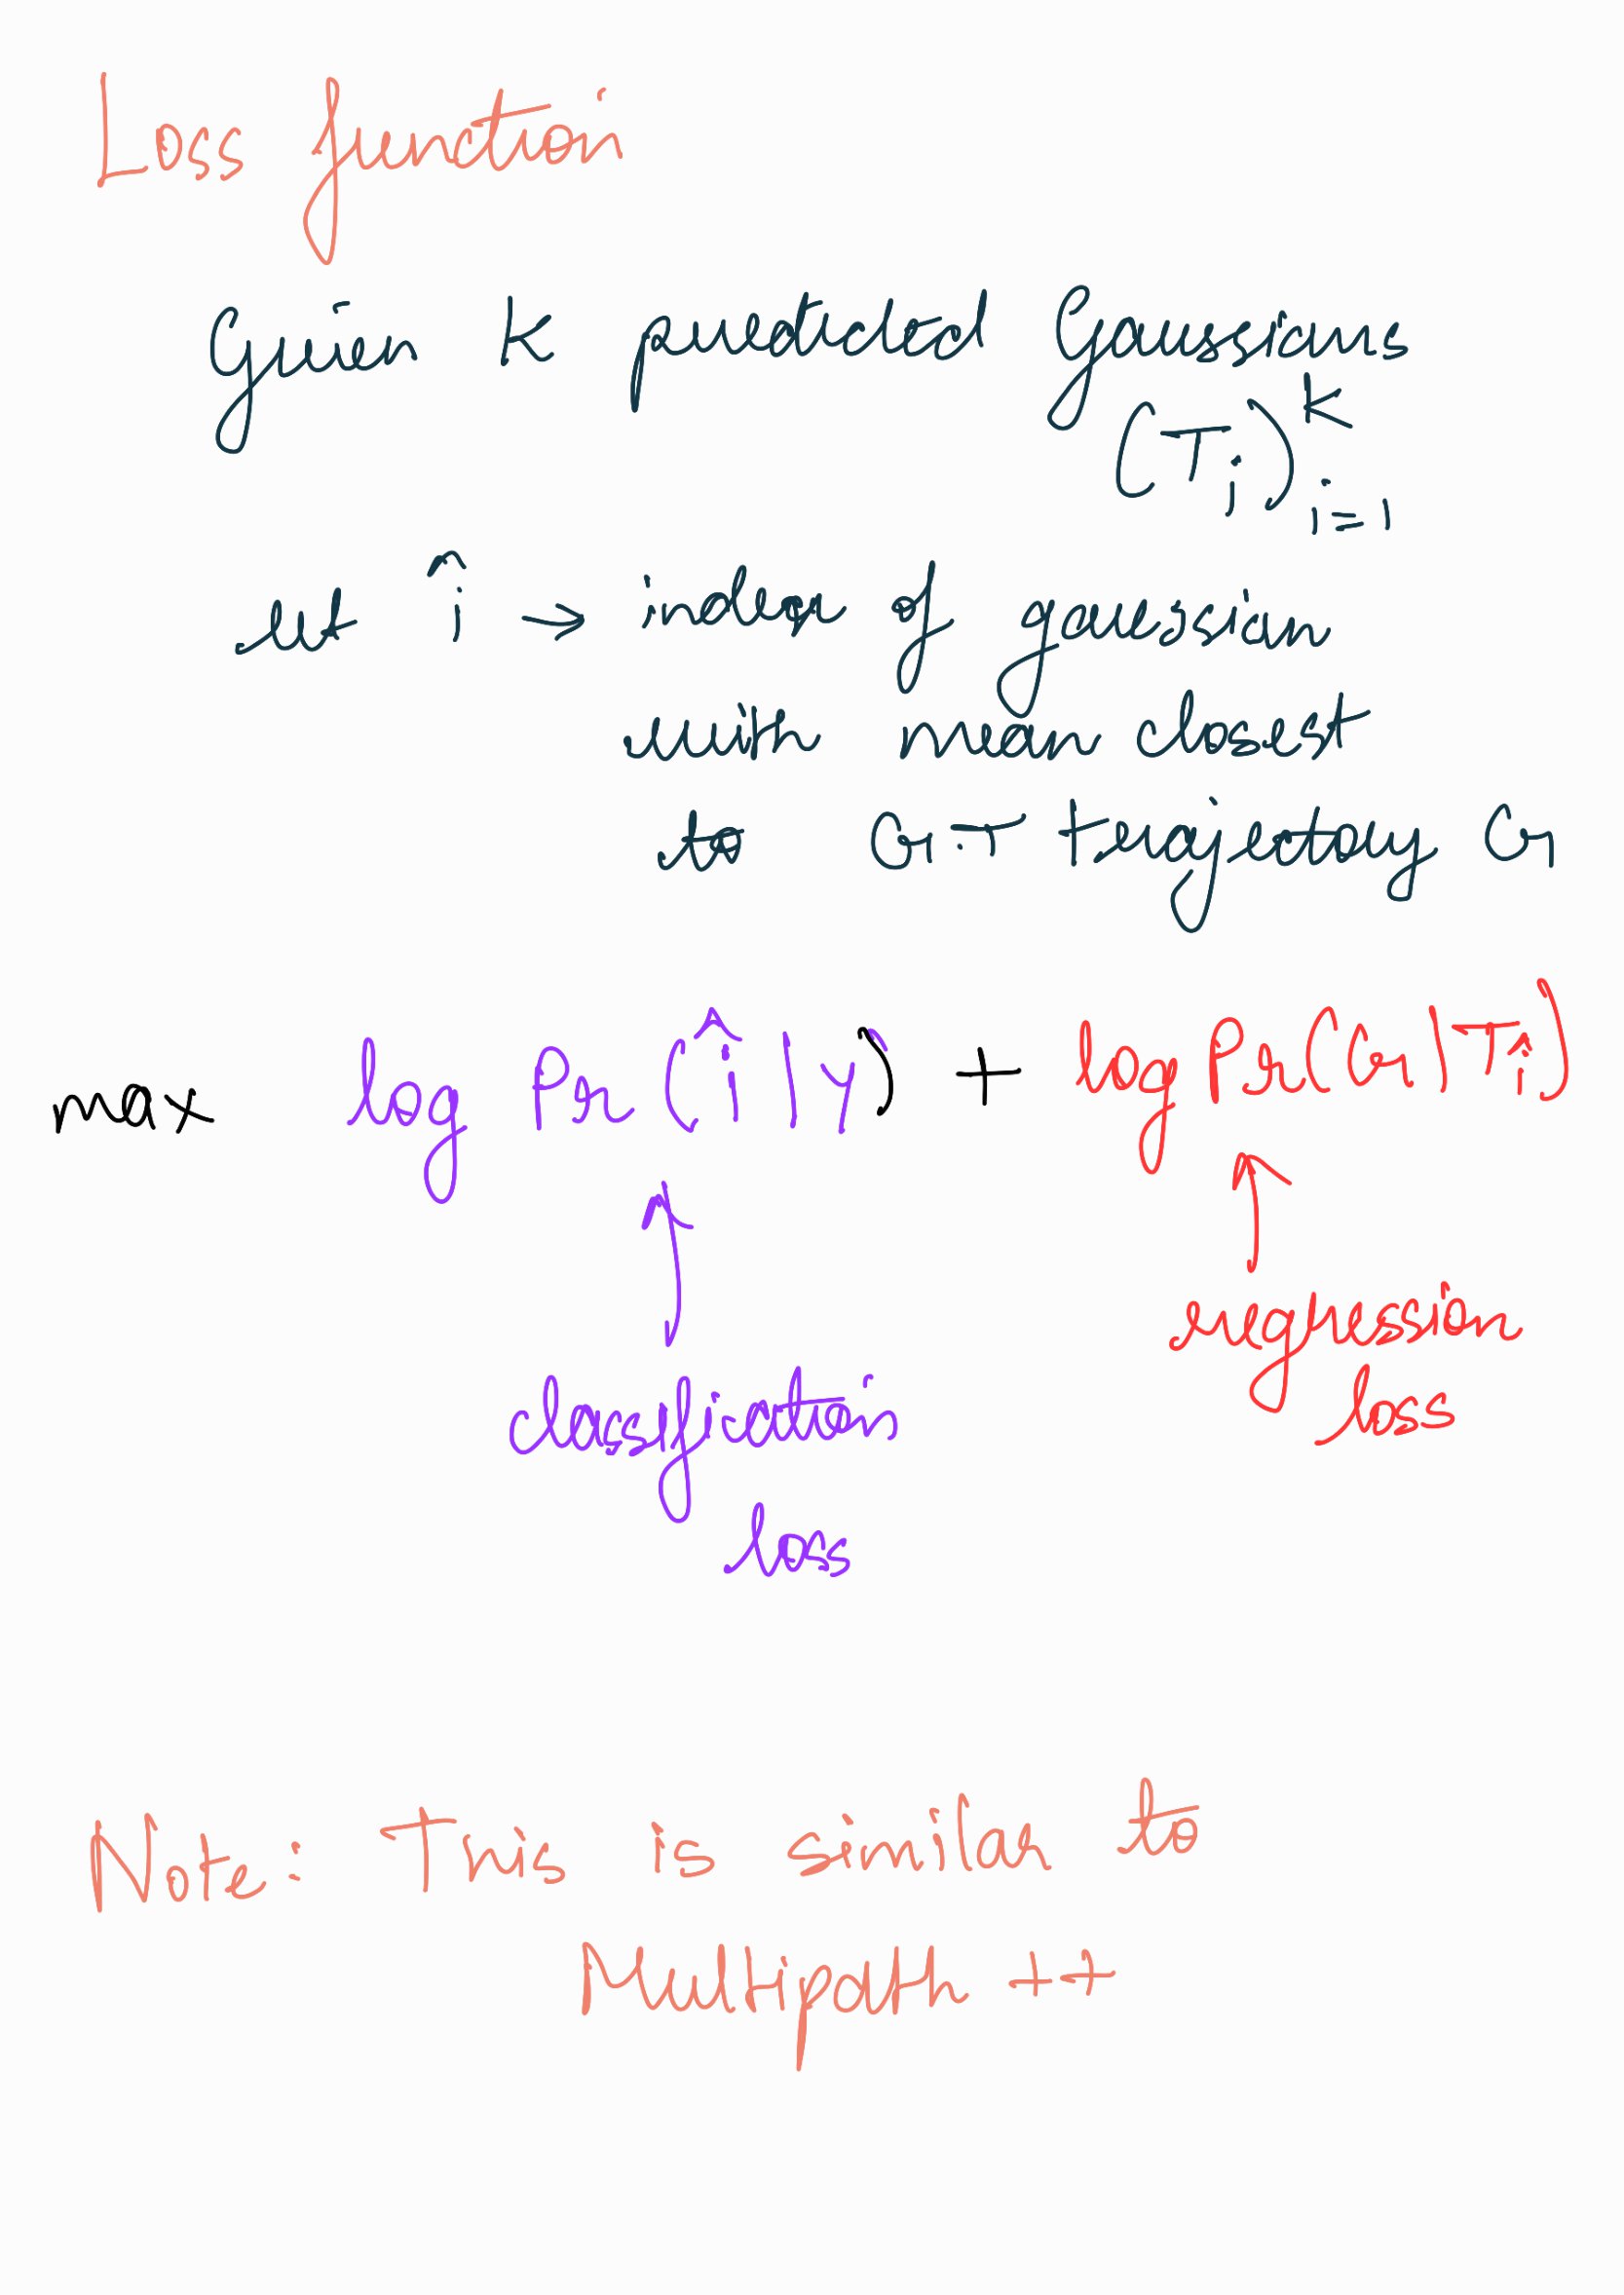 Loss function
Given K predicted Gaussians
(Tᵢ)ᴷᵢ₌₁
let î → index of gaussian
with mean closest
to G.T trajectory G
max log Pr(î|Y) + log Pr(G|Tî)
regression
loss
classification
loss
Note: This is similar to
Multipath ++